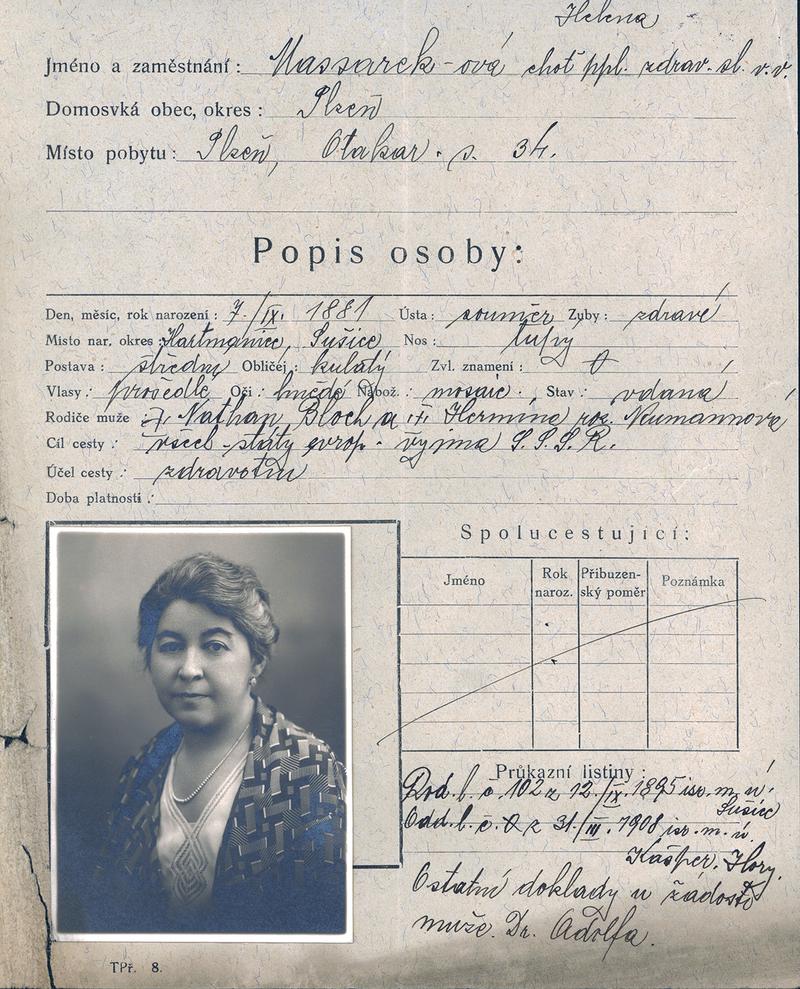 Helena
Jméno a zaměstnání : Massarek-ová choť ppl. zdrav. sl. v.v.
Domosvká obec, okres : Plzeň
Místo pobytu : Plzeň, Otakar. s. 34.
Popis osoby:
Den, měsíc, rok narození : 7./IX. 1881 Ústa : souměr Zuby : zdravé
Místo nar, okres : Hartmanice, Sušice Nos : tupý
Postava : střední Obličej : kulatý Zvl. znamení : 0
Vlasy : prošedlé Oči : hnědé Nábož. mosaic. Stav : vdaná
Rodiče muže : Nathan Bloch a Hermina roz. Neumannová
Cíl cesty : všech státy evrop. vyjma S.S.S.R.
Účel cesty : zdravotní
Doba platnosti :
Spolucestující:
Jméno Rok naroz. Příbuzenský poměr Poznámka
Průkazní listiny :
Rod. l. č. 102 z 12./IX. 1895 isr. m. ú.
Sušice
Odd. l. č. 0 z 31./III. 1908 isr. m. ú.
Kašper. Hory.
Ostatní doklady u žádosti
muže. Dr. Adolfa.
TPř. 8.